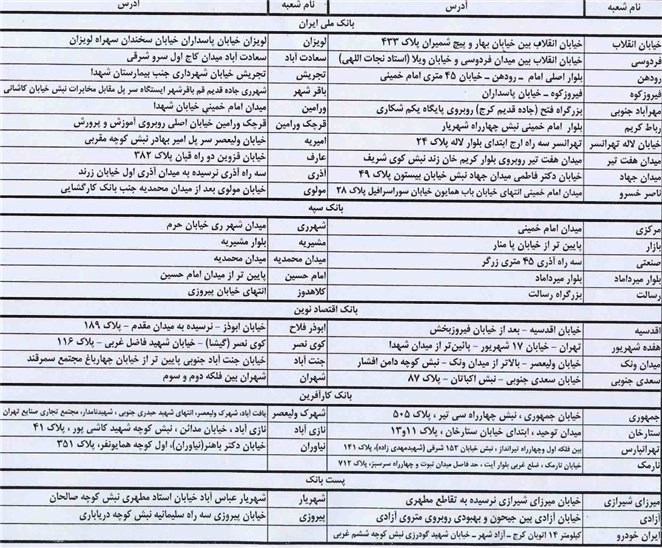 نام شعبه آدرس نام شعبه آدرس
بانک ملی ایران
خیابان انقلاب خیابان انقلاب بین خیابان بهار و پیچ شمیران پلاک ۴۳۳ لویزان لویزان خیابان پاسداران خیابان سخندان سهراه لویزان
فردوسی خیابان انقلاب بین میدان فردوسی و خیابان ویلا (استاد نجات اللهی) سعادت آباد سعادت آباد میدان کاج اول سرو شرقی
رودهن بلوار اصلی امام ـ رودهن ـ خیابان ۴۵ متری امام خمینی تجریش تجریش خیابان شهرداری جنب بیمارستان شهدا
فیروزکوه فیروزکوه ـ خیابان پاسداران باقر شهر شهرری جاده قدیم قم باقرشهر ایستگاه سر پل مقابل مخابرات نبش خیابان کاشانی
مهرآباد جنوبی بزرگراه فتح (جاده قدیم کرج) روبروی پایگاه یکم شکاری ورامین میدان امام خمینی خیابان شهدا
رباط کریم بلوار امام خمینی نبش چهارراه شهریار قرچک ورامین قرچک ورامین خیابان اصلی روبروی آموزش و پرورش
خیابان لاله تهرانسر تهرانسر سه راه ارج ابتدای بلوار لاله پلاک ۲۴ امیریه خیابان ولیعصر سر پل امیر بهادر نبش کوچه مقربی
میدان هفت تیر میدان هفت تیر روبروی بلوار کریم خان زند نبش کوی شریف عارف خیابان قزوین دو راه قپان پلاک ۳۸۲
میدان جهاد خیابان دکتر فاطمی میدان جهاد نبش خیابان بیستون پلاک ۴۹ آذری سه راه آذری نرسیده به میدان آذری اول خیابان زرند
ناصر خسرو میدان امام خمینی انتهای خیابان باب همایون خیابان سوراسرافیل پلاک ۲۸ مولوی خیابان مولوی بعد از میدان محمدیه جنب بانک کارگشایی
بانک سپه
مرکزی میدان امام خمینی شهرری میدان شهر ری خیابان حرم
بازار پایین تر از خیابان پا منار مشیریه بلوار مشیریه
صنعتی سه راه آذری ۴۵ متری زرگر میدان محمدیه میدان محمدیه
بلوار میرداماد بلوار میرداماد امام حسین پایین تر از میدان امام حسین
رسالت بزرگراه رسالت کلاهدوز انتهای خیابان پیروزی
بانک اقتصاد نوین
اقدسیه خیابان اقدسیه - بعد از خیابان فیروزبخش ابوذر فلاح خیابان ابوذر - نرسیده به میدان مقدم - پلاک ۱۸۹
هفده شهریور تهران - خیابان ۱۷ شهریور - پائین‌تر از میدان شهدا کوی نصر کوی نصر (گیشا) - خیابان شهید فاضل غربی - پلاک ۱۱۶
میدان ونک خیابان ولیعصر - بالاتر از میدان ونک - نبش کوچه دامن افشار جنت آباد خیابان جنت آباد جنوبی پایین تر از خیابان چهارباغ مجتمع سمرقند
سعدی جنوبی خیابان سعدی جنوبی - نبش اکباتان - پلاک ۸۷ شهران شهران بین فلکه دوم و سوم
بانک کارآفرین
جمهوری خیابان جمهوری ، نبش چهارراه سی تیر ، پلاک ۵۰۵ شهرک ولیعصر یافت آباد، شهرک ولیعصر، انتهای شهید حیدری جنوبی ، شهیدنامدار، مجتمع تجاری صنایع تهران
ستارخان میدان توحید ، ابتدای خیابان ستارخان ، پلاک ۱۱و۱۳ نازی آباد نازی آباد ، خیابان مدائن ، نبش کوچه شهید کاشی پور ، پلاک ۴۱
تهرانپارس بین فلکه اول وچهارراه تیرانداز ، نبش خیابان ۱۵۲ شرقی (شهیدمهدی زاده)، پلاک ۱۴۱ نیاوران خیابان دکتر باهنر(نیاوران)، اول کوچه همایونفر، پلاک ۳۵۱
نارمک خیابان نارمک ، ضلع غربی بلوار آیت ، حد فاصل میدان نبوت و چهارراه سرسبز، پلاک ۷۱۲
پست بانک
میرزای شیرازی خیابان میرزای شیرازی نرسیده به تقاطع مطهری شهریار شهریار عباس آباد خیابان استاد مطهری نبش کوچه صالحان
آزادی خیابان آزادی بین جیحون و بهبودی روبروی متروی آزادی پیروزی خیابان پیروزی سه راه سلیمانیه نبش کوچه دریاباری
ایران خودرو کیلومتر ۱۴ اتوبان کرج ـ آزاد شهر ـ خیابان شهید گودرزی نبش کوچه ششم غربی